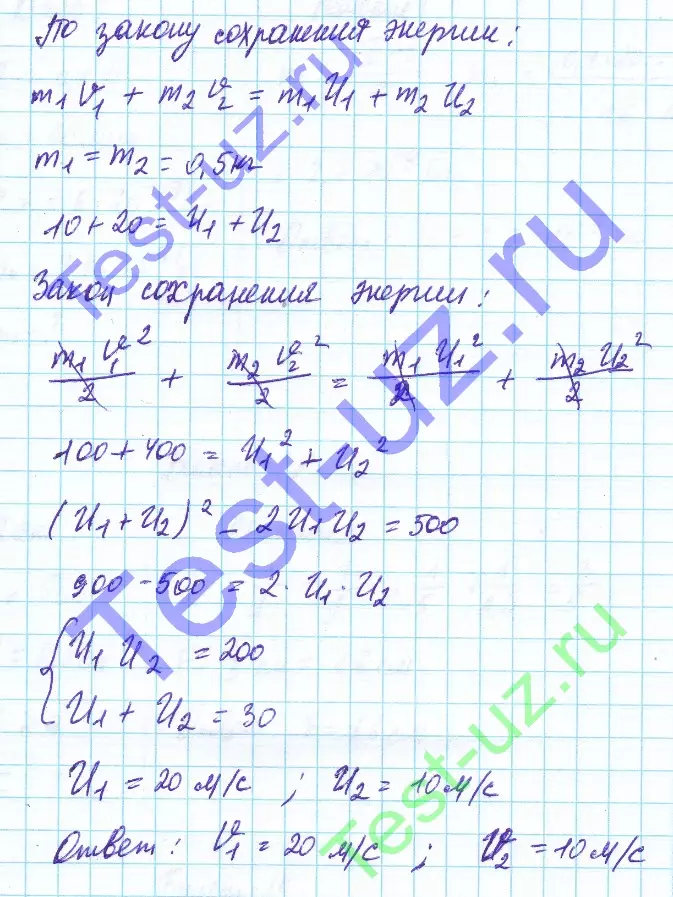 По закону сохранения энергии:
m₁ v₁ + m₂ v₂ = m₁ U₁ + m₂ U₂
m₁ = m₂ = 0,5 кг
10 + 20 = U₁ + U₂
Закон сохранения энергии:
m₁ v₁²/2 + m₂ v₂²/2 = m₁ U₁²/2 + m₂ U₂²/2
100 + 400 = U₁² + U₂²
(U₁ + U₂)² - 2 U₁ U₂ = 500
900 - 500 = 2 · U₁ · U₂
{ U₁ U₂ = 200
U₁ + U₂ = 30
U₁ = 20 м/с ; U₂ = 10 м/с
Ответ: v₁ = 20 м/с ; v₂ = 10 м/с
Test-uz.ru
Test-uz.ru
Test-uz.ru